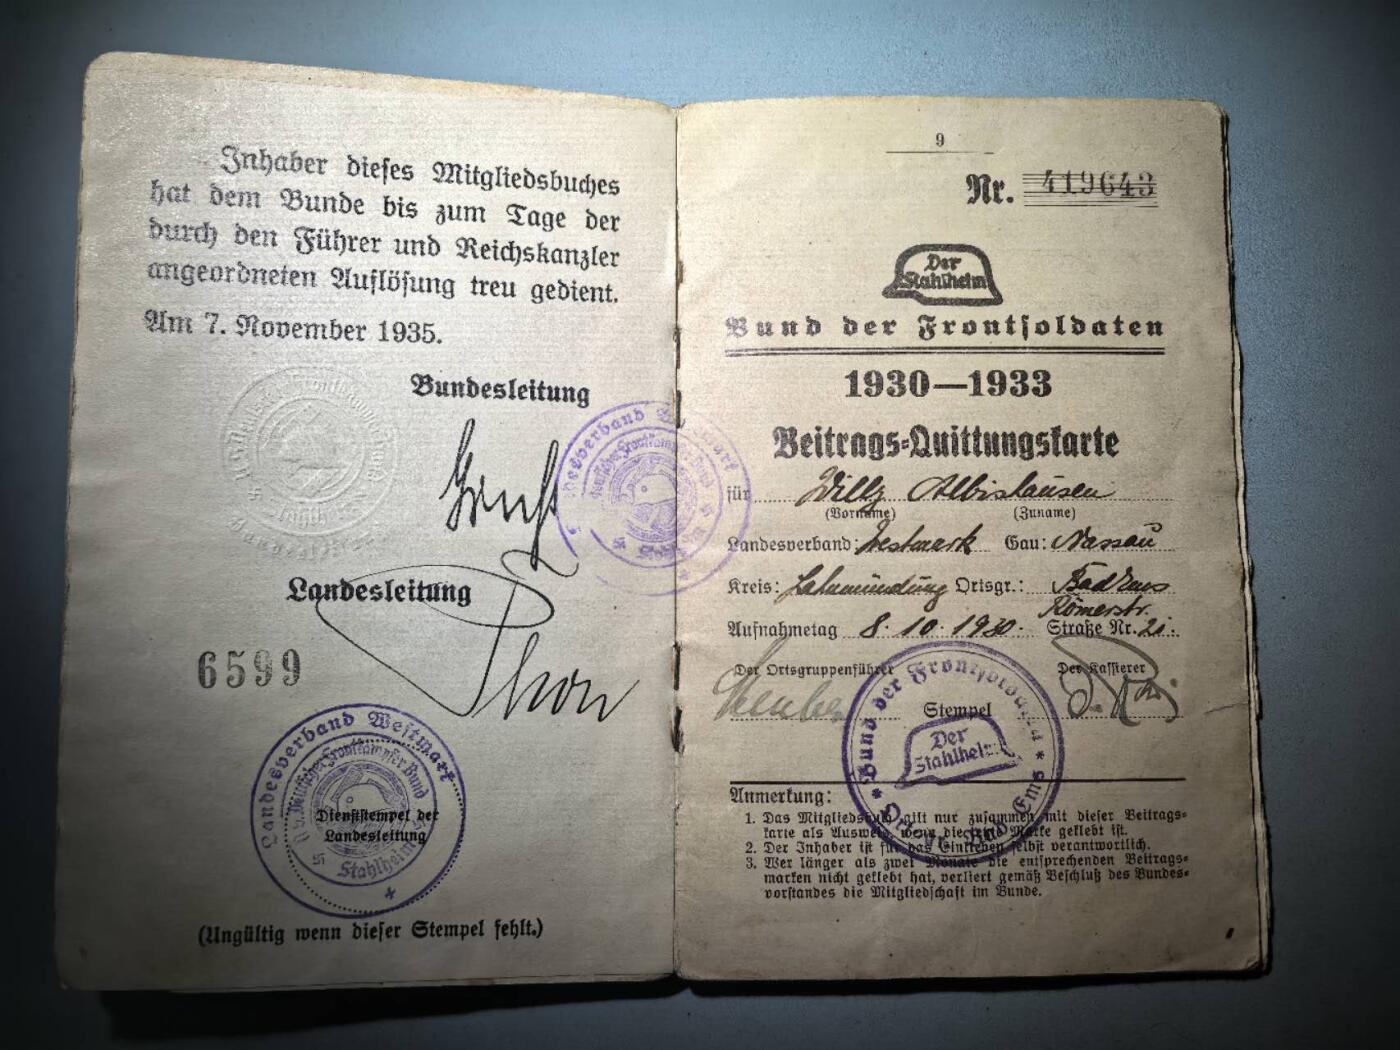 Inhaber dieses Mitgliedsbuches
hat dem Bunde bis zum Tage der
durch den Führer und Reichskanzler
angeordneten Auflösung treu gedient.
Am 7. November 1935.
Bundesleitung
Landesleitung
6599
Landesverband Westmark
Deutscher Frontkämpfer Bund
Stahlhelm
Dienststempel der
Landesleitung
(Ungültig wenn dieser Stempel fehlt.)
Landesverband Westmark
9
Nr. 419643
Der
Stahlhelm
Bund der Frontsoldaten
1930—1933
Beitrags-Quittungskarte
für Willy Albishausen
(Vorname) (Zuname)
Landesverband: Westmark Gau: Nassau
Kreis: Lahnmündung Ortsgr.: Bad Ems
Römerstr.
Aufnahmetag 8. 10. 1930. Straße Nr. 21.
Der Ortsgruppenführer Der Kassierer
Stempel
Bund der Frontsoldaten
Der
Stahlhelm
Bad Ems
Anmerkung:
1. Das Mitgliedsbuch gilt nur zusammen mit dieser Beitrags-
karte als Ausweis, wenn die Marke geklebt ist.
2. Der Inhaber ist für das Einkleben selbst verantwortlich.
3. Wer länger als zwei Monate die entsprechenden Beitrags-
marken nicht geklebt hat, verliert gemäß Beschluß des Bundes-
vorstandes die Mitgliedschaft im Bunde.